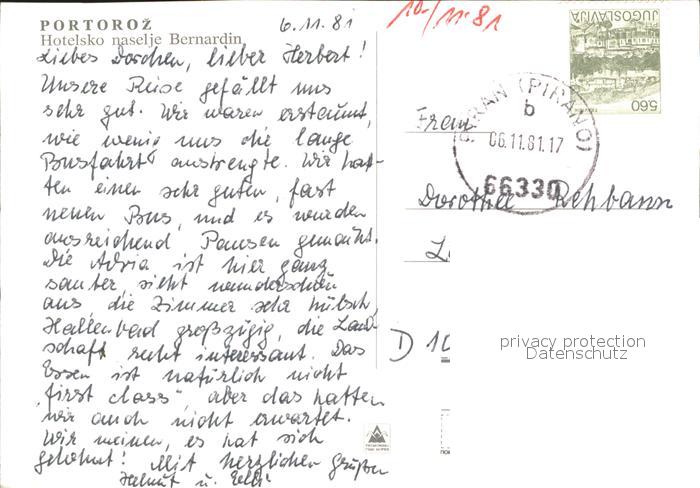 PORTOROŽ
Hotelsko naselje Bernardin
6.11.81
10-/11.81
Liebes Dorchen, lieber Herbert!
Unsere Reise gefällt uns
sehr gut. Wir waren erstaunt,
wie wenig uns die lange
Busfahrt anstrengte. Wir hat-
ten einen sehr guten, fast
neuen Bus, und es wurden
ausreichend Pausen gemacht.
Die Adria ist hier ganz
sauber, sieht wunderschön
aus, die Zimmer sehr hübsch,
Hallenbad großzügig, die Land-
schaft recht interessant. Das
Essen ist natürlich nicht
"first class", aber das hatten
wir auch nicht erwartet.
Wir meinen, es hat sich
gelohnt! Mit herzlichen Grüßen
Helmut u. Elli
JUGOSLAVIJA
5.60
PIRAN (PIRANO)
b
06.11.81.17
66330
Frau
Dorothee Rehbann
D 10
privacy protection
Datenschutz